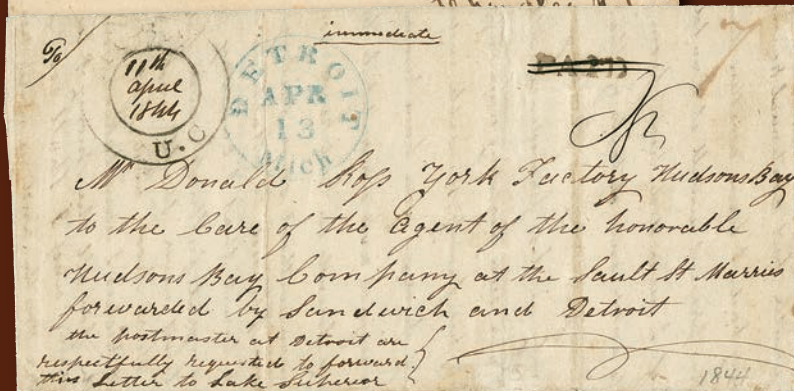 immediate
6/
11th
april
1844
U.C
DETROIT
APR
13
Mich
PAID
Mr Donald Ross York Factory Hudsons Bay
to the Care of the Agent of the honorable
Hudsons Bay Company at the Sault St Marries
forewarded by Sandwich and Detroit
the postmaster at Detroit are
respectfully requested to forward
this Letter to Lake Superior
1844